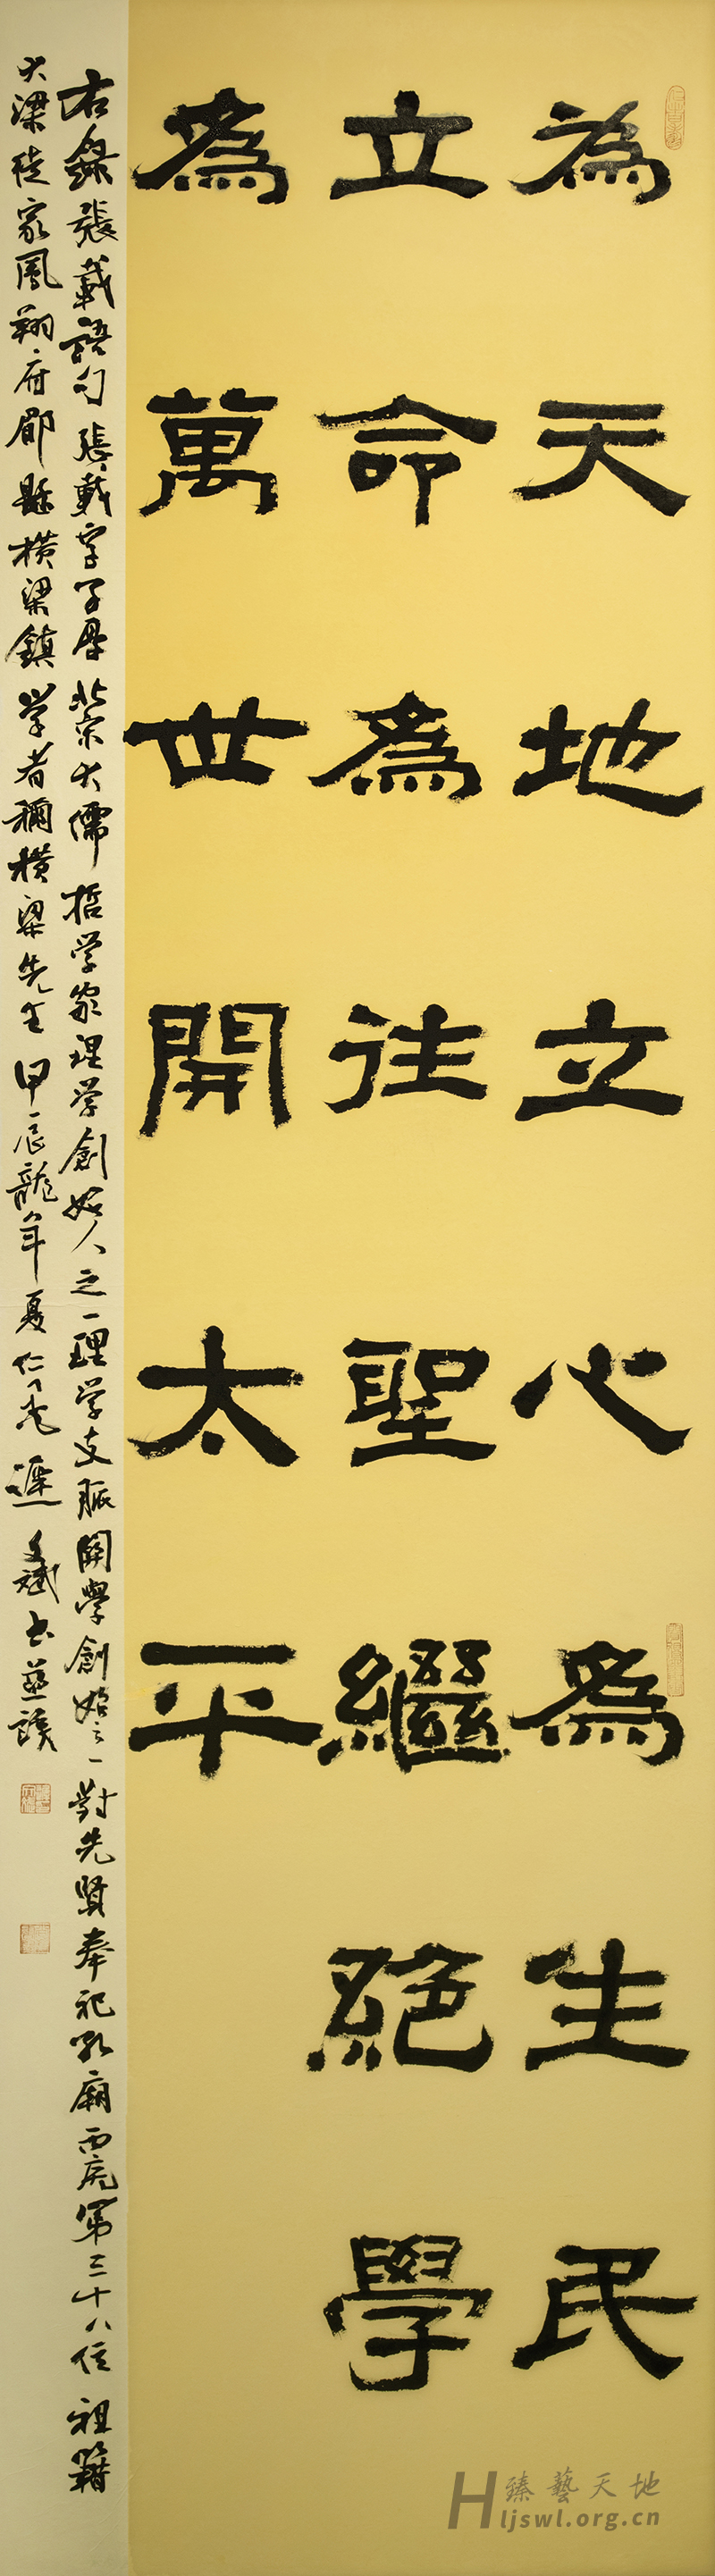 為天地立心為生民
立命為往聖繼絕學
為萬世開太平
右錄張載語句張載字子厚北宋大儒哲學家理學創始人之一理学支脈關學創始之一對先賢奉祀孔廟西廡第三十八位祖籍
大梁徙家鳳翔府郿縣横梁鎮学者稱横梁先生甲辰龍年夏仁 遲文斌书並識
臻藝天地
Hljswl.org.cn